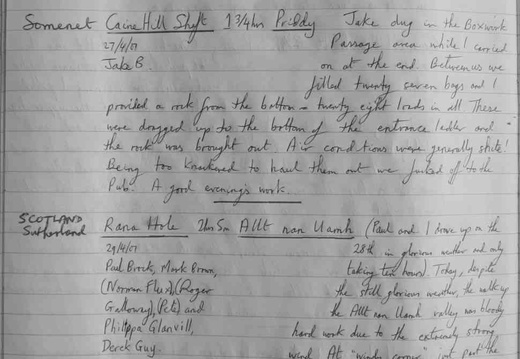 Somerset Caine Hill Shaft 1 3/4 hrs Priddy Jake dug in the Boxwork
27/4/07 Passage area while I carried
Jake B. on at the end. Between us we
filled twenty seven bags and I
provided a rock from the bottom - twenty eight loads in all. These
were dragged up to the bottom of the entrance ladder and
the rock was brought out. Air conditions were generally shite!
Being too knackered to haul them out we fucked off to the
Pub. A good evening's work.
SCOTLAND
Sutherland Rana Hole 2hrs 5m Allt nan Uamh (Paul and I drove up on the
29/4/07 28th in glorious weather and only
Paul Brock, Mark Brown, taking ten hours). Today, despite
(Norman Flux), (Roger the still glorious weather, the walk up
Galloway), (Pete) and the Allt nan Uamh valley was bloody
Philippa Glanvill, hard work due to the extremely strong
Derek Guy. wind. At "windy corner" just past the